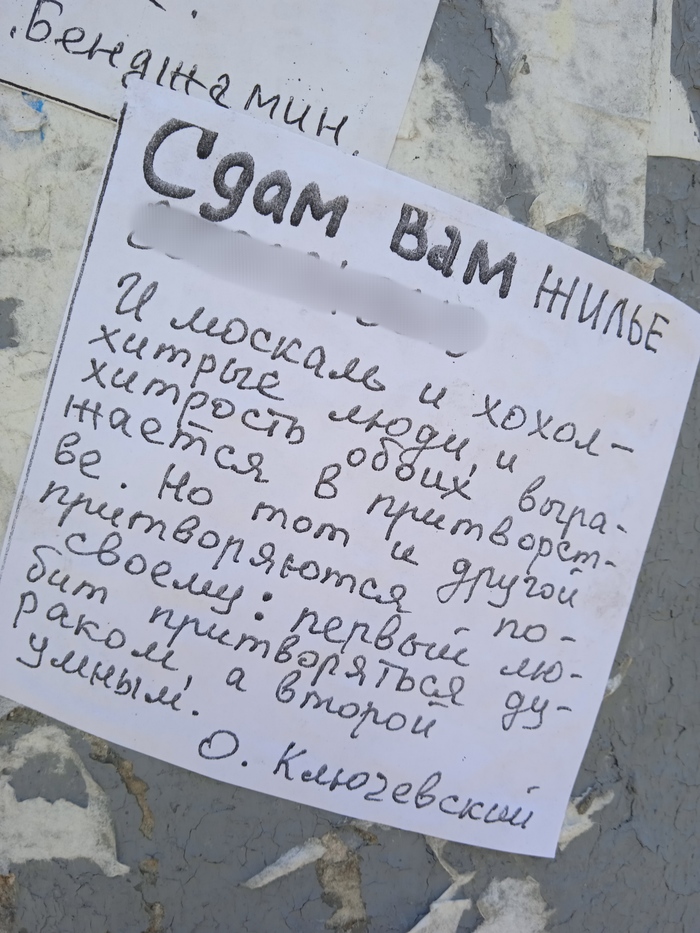 .Бенджамин.
Сдам вам жилье
И москаль и хохол-
хитрые люди, и
хитрость обоих выра-
жается в притворст-
ве. Но тот и другой
притворяются по-
своему: первый лю-
бит притворяться ду-
раком, а второй
умным.
О. Ключевский